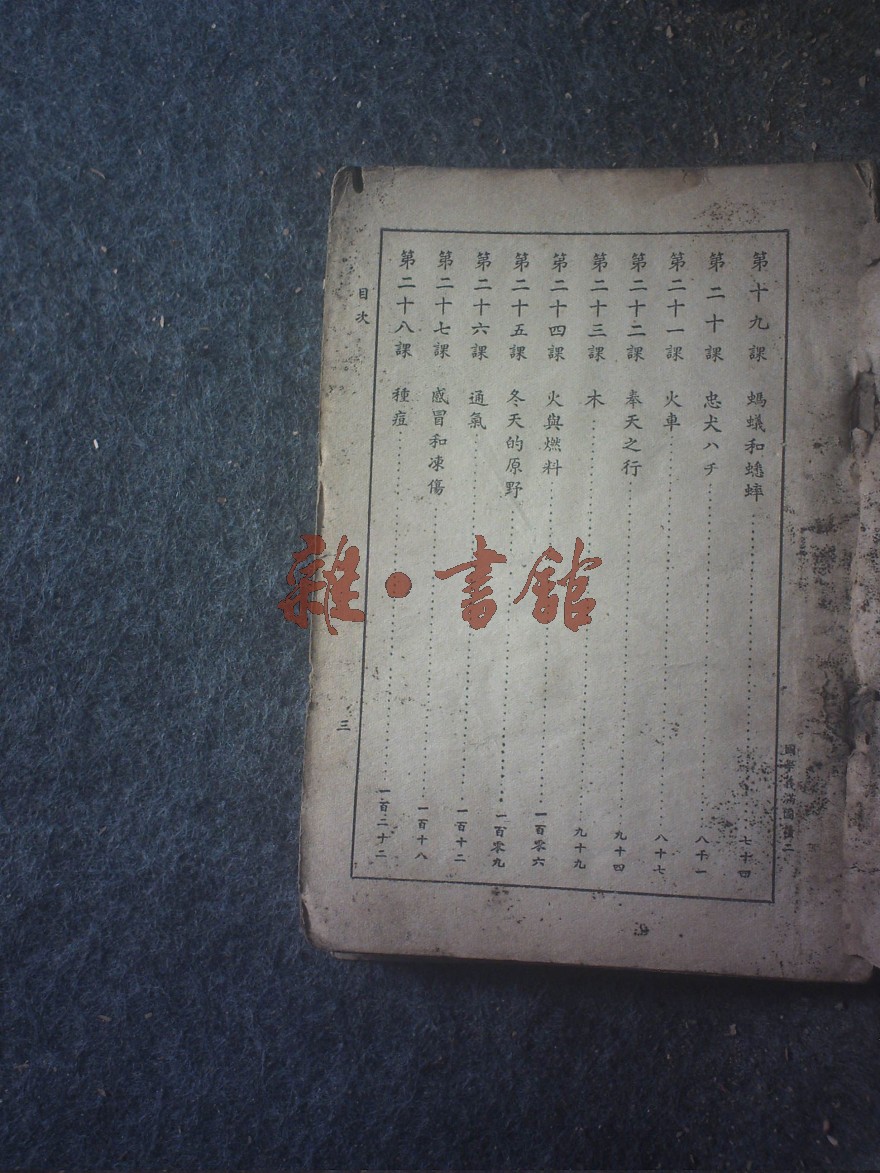 國學義滿國語二
第十九課 螞蟻和蟋蟀 七十四
第二十課 忠犬ハチ 八十一
第二十一課 火車 八十七
第二十二課 奉天之行 九十四
第二十三課 木 九十九
第二十四課 火與燃料 一百零六
第二十五課 冬天的原野 一百零九
第二十六課 通氣 一百十二
第二十七課 感冒和凍傷 一百十八
第二十八課 種痘 一百二十二
目次
三
雜·書館